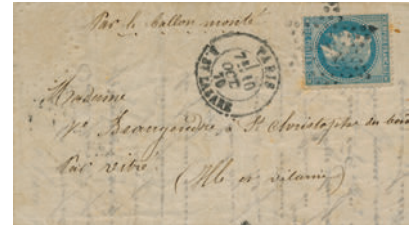 Par le ballon monté
PARIS
7E/ 10
OCT.
70
R. ST LAZARE
Madame
Ve Beaugendre, à St Christophe du bois
Par Vitré
(Ille et vilaine)